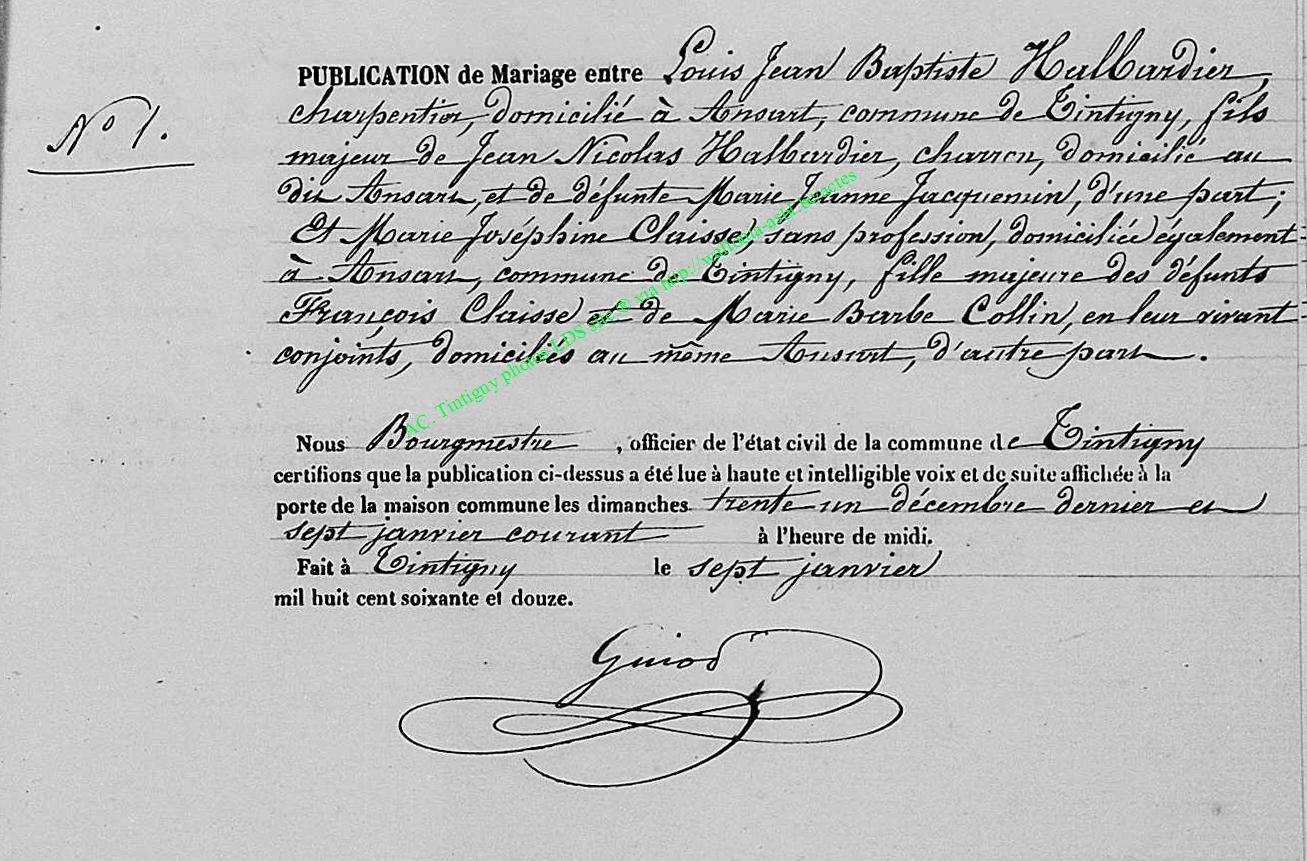 PUBLICATION de Mariage entre Louis Jean Baptiste Halbardier,
N° 1.
charpentier, domicilié à Ansart, commune de Tintigny, fils
majeur de Jean Nicolas Halbardier, charron, domicilié au
dit Ansart, et de défunte Marie Jeanne Jacquemin, d'une part;
Et Marie Joséphine Claisse, sans profession, domiciliée également
à Ansart, commune de Tintigny, fille majeure des défunts
François Claisse et de Marie Barbe Collin, en leur vivant
conjoints, domiciliés au même Ansart, d'autre part.
AC. Tintigny photos LDS site ® via
Nous Bourgmestre, officier de l'état civil de la commune de Tintigny
certifions que la publication ci-dessus a été lue à haute et intelligible voix et de suite affichée à la
porte de la maison commune les dimanches trente un décembre dernier et
sept janvier courant à l'heure de midi.
Fait à Tintigny le sept janvier
mil huit cent soixante et douze.